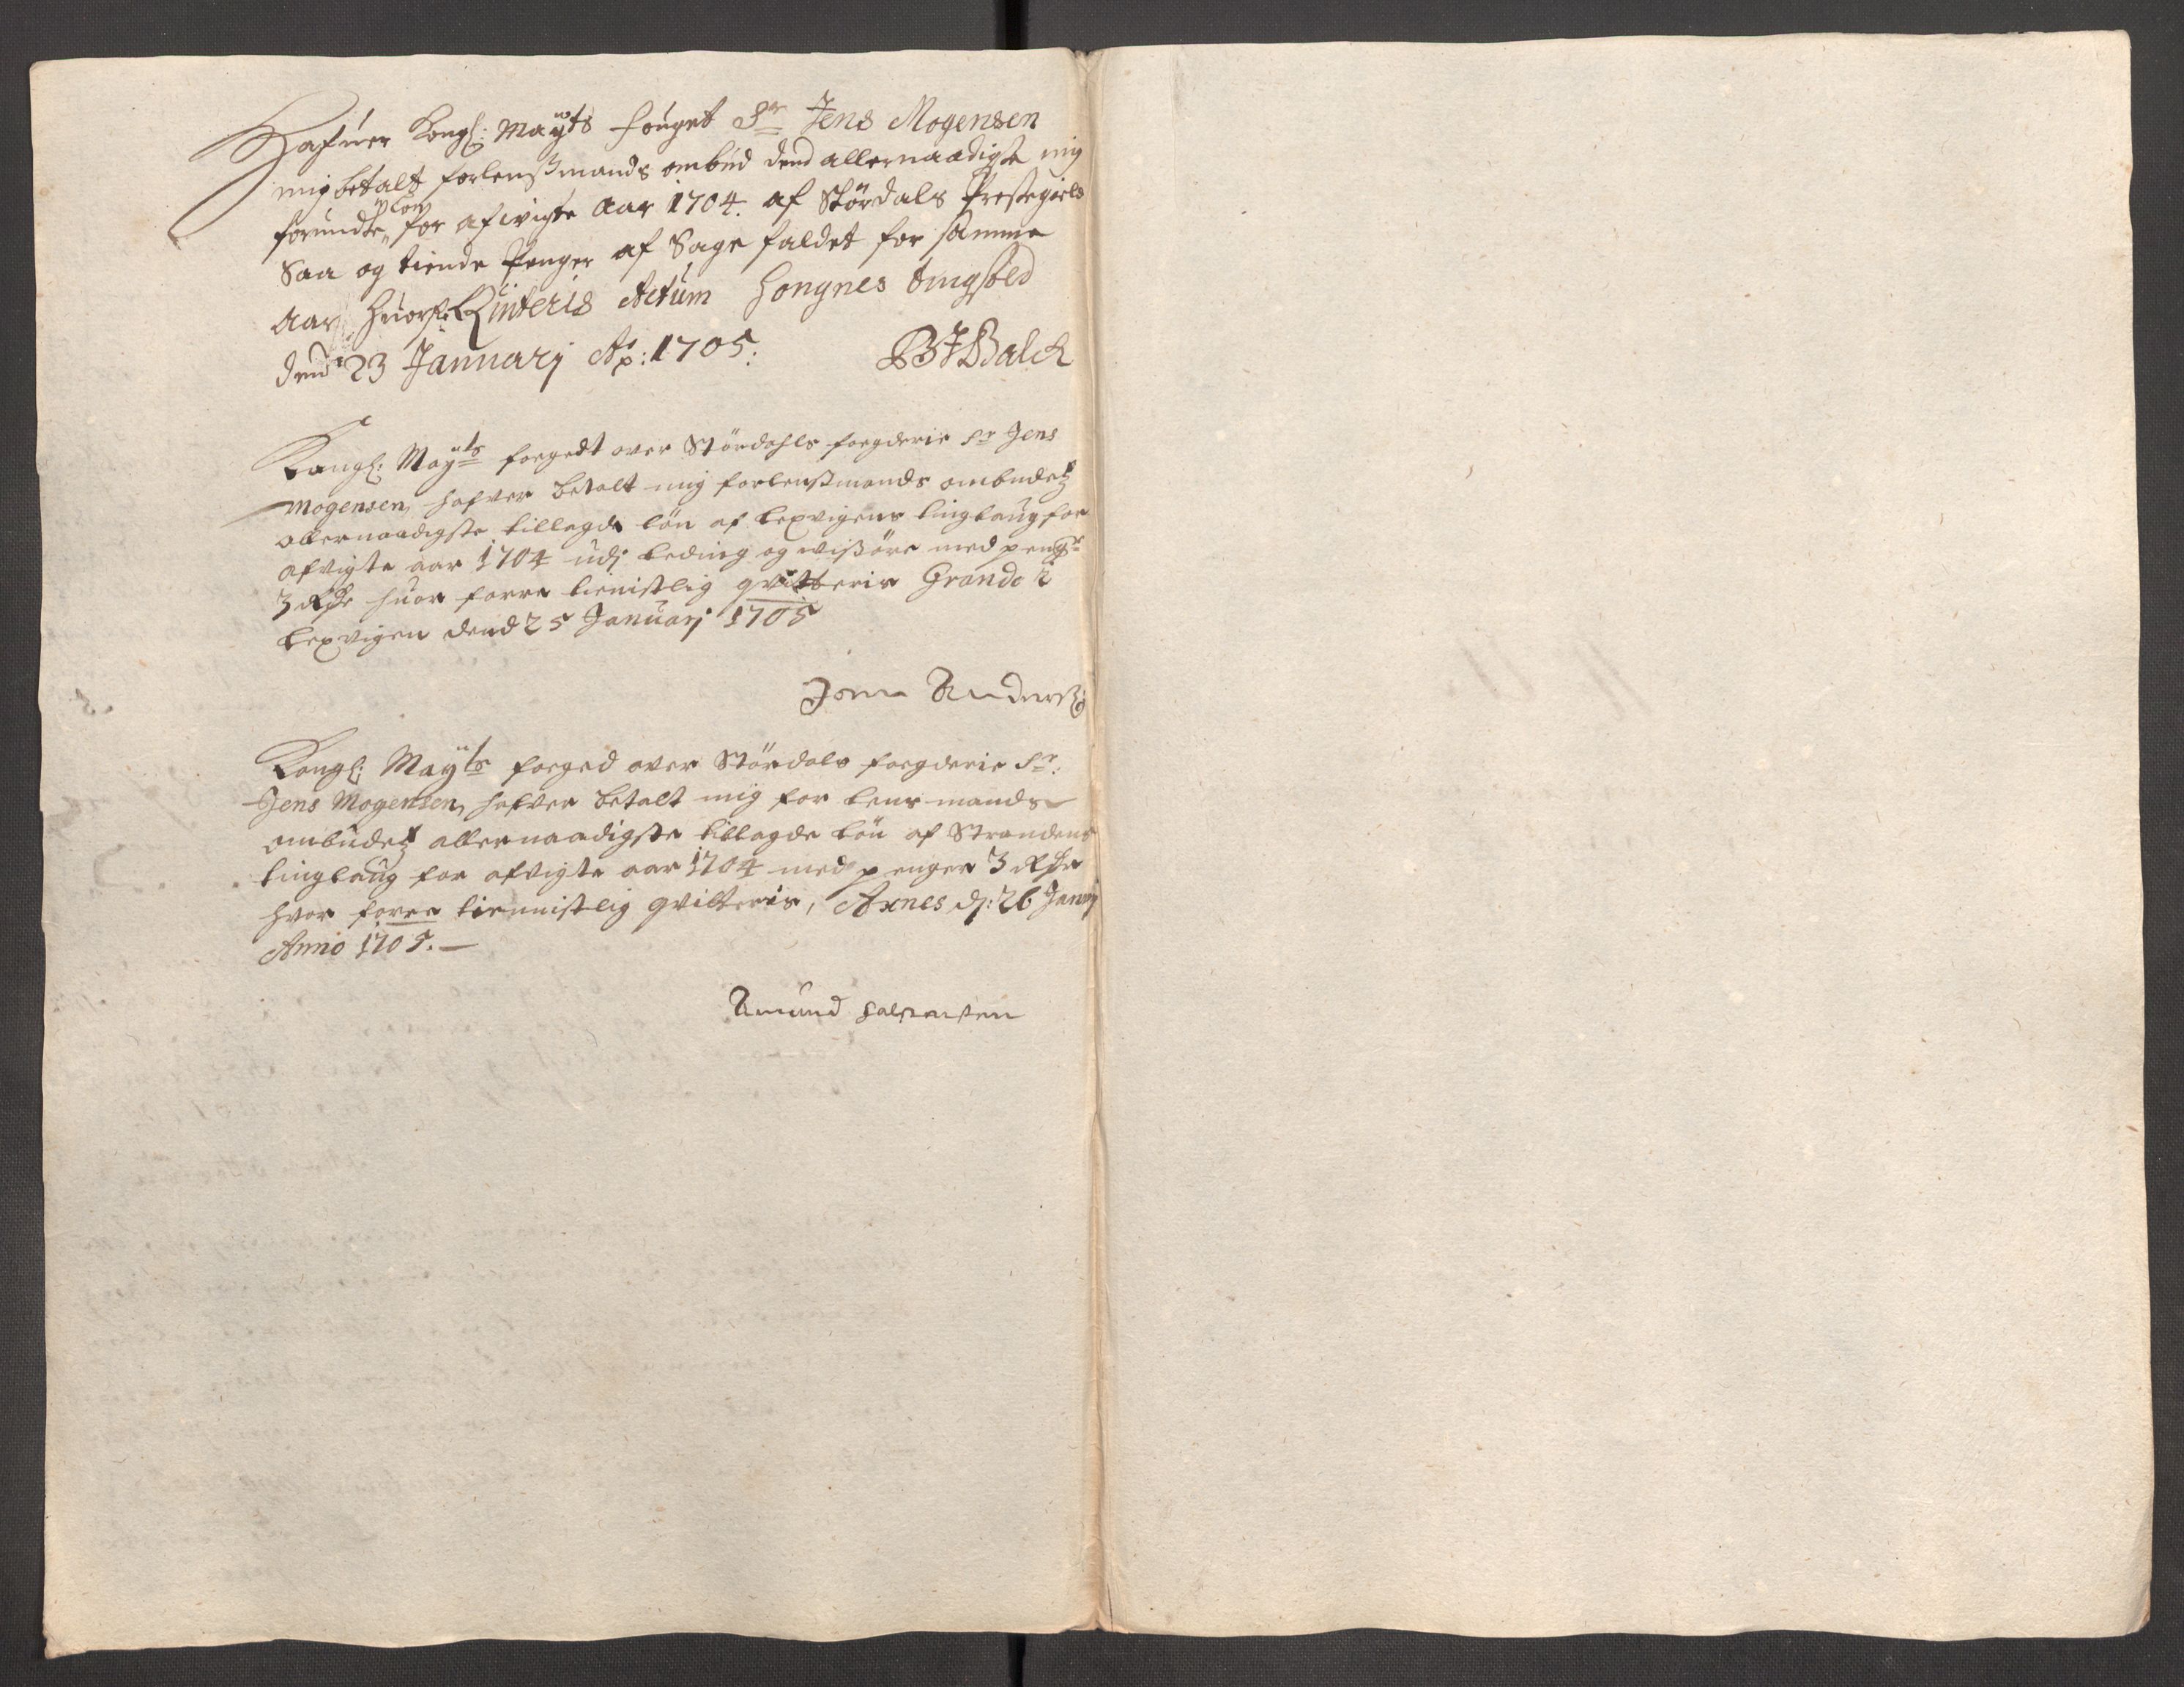 Hafuer Kongl: Maÿts fouget Sr Jens Mogensen
mig betalt forlenssmands ombud dend allernaadigste mig
forundte løn for afwigte Aar 1704. af Størdals Prestegield
Saa og tiende Penger af Sage faldet for samme
Aar, huorfor Quiteris Actum Hongnes tingsted
dend 23 Januarj Ao: 1705. BJBalck
Kongl: Mayts foegedt over Stördahls foegderie Sr Jens
Mogensen, hafver betalt mig forlenssmands ombudetz
allernaadigste tillagde lön af Lexvigens tinglaug for
afvigte aar 1704 udj leding og wissöre med pengr
3 Rdr huor forre tienistlig qvitteris Grande i
Lexvigen dend 25 Januarj 1705
Jonn Anderss:
Kongl: Mayts foeged over Stördals foegderie Sr:
Jens Mogensen, hafver betalt mig for lens mands
ombudetz allernaadigste tillagde lön af Strandens
tinglaug for afvigte aar 1704 med penger 3 Rdr
hvor forre tiennistlig qvitteris, Axnes dj: 26 Janrj
Anno 1705.
Amund